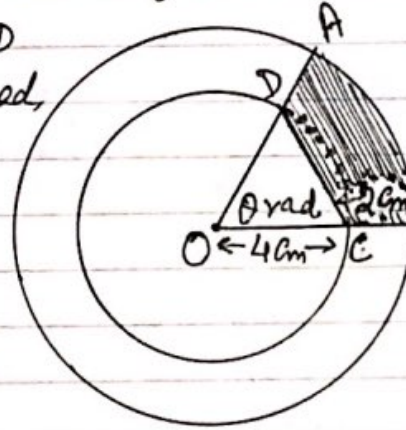 D
ed,
A
D
θ rad
2cm
O ←4cm→ C